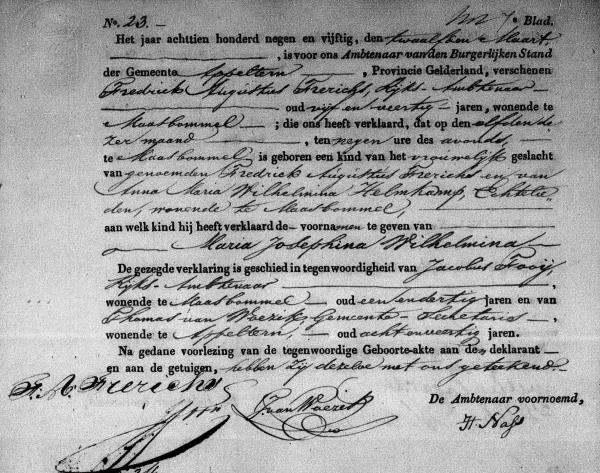 No. 23. Blad.
Het jaar achttien honderd negen en vijftig, den twaalfden Maart
, is voor ons Ambtenaar van den Burgerlijken Stand
der Gemeente Appeltern, Provincie Gelderland, verschenen
Fredrick Augustus Frerichs, Rijks-Ambtenaar
oud vijf en veertig jaren, wonende te
Maasbommel; die ons heeft verklaard, dat op den elfden de
zer maand, ten negen ure des avonds,
te Maasbommel is geboren een kind van het vrouwelijk geslacht
van genoemden Fredrick Augustus Frerichs en van
Anna Maria Wilhelmina Helmkamp, Echtelie
den, wonende te Maasbommel,
aan welk kind hij heeft verklaard de voornamen te geven van
Maria Josephina Wilhelmina
De gezegde verklaring is geschied in tegenwoordigheid van Jacobus Trooij,
Rijks-Ambtenaar,
wonende te Maasbommel oud een en dertig jaren en van
Thomas van Woezik, Gemeente-Secretaris,
wonende te Appeltern, oud acht en veertig jaren.
Na gedane voorlezing van de tegenwoordige Geboorte-akte aan den deklarant
en aan de getuigen, hebben zij dezelve met ons geteekend.
F. A. Frerichs
T. van Woezik
De Ambtenaar voornoemd,